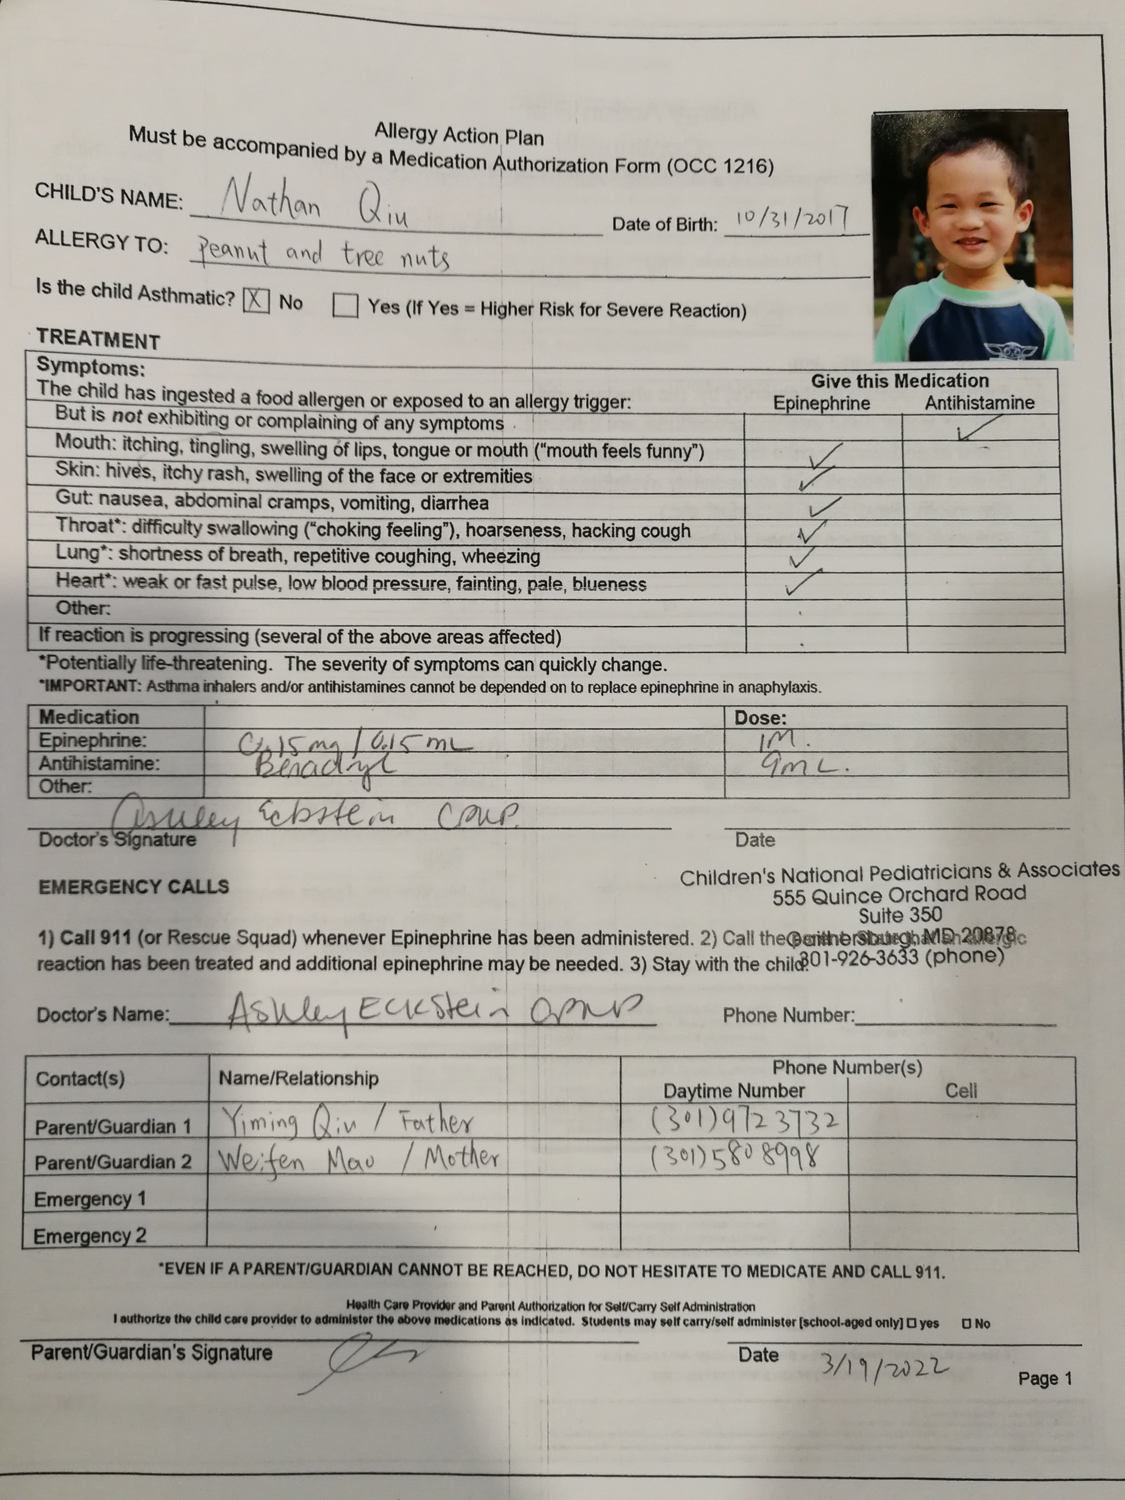 Allergy Action Plan
Must be accompanied by a Medication Authorization Form (OCC 1216)
CHILD'S NAME: Nathan Qiu Date of Birth: 10/31/2017
ALLERGY TO: Peanut and tree nuts
Is the child Asthmatic? X No Yes (If Yes = Higher Risk for Severe Reaction)
TREATMENT
Symptoms: Give this Medication
The child has ingested a food allergen or exposed to an allergy trigger: Epinephrine Antihistamine
But is not exhibiting or complaining of any symptoms ✓
Mouth: itching, tingling, swelling of lips, tongue or mouth ("mouth feels funny") ✓
Skin: hives, itchy rash, swelling of the face or extremities ✓
Gut: nausea, abdominal cramps, vomiting, diarrhea ✓
Throat*: difficulty swallowing ("choking feeling"), hoarseness, hacking cough ✓
Lung*: shortness of breath, repetitive coughing, wheezing ✓
Heart*: weak or fast pulse, low blood pressure, fainting, pale, blueness ✓
Other:
If reaction is progressing (several of the above areas affected)
*Potentially life-threatening. The severity of symptoms can quickly change.
*IMPORTANT: Asthma inhalers and/or antihistamines cannot be depended on to replace epinephrine in anaphylaxis.
Medication Dose:
Epinephrine: 0.15mg / 0.15mL IM.
Antihistamine: Benadryl 9mL.
Other:
Ashley Eckstein CPNP.
Doctor's Signature Date
Children's National Pediatricians & Associates
555 Quince Orchard Road
Suite 350
Gaithersburg, MD 20878
301-926-3633 (phone)
EMERGENCY CALLS
1) Call 911 (or Rescue Squad) whenever Epinephrine has been administered. 2) Call the
reaction has been treated and additional epinephrine may be needed. 3) Stay with the child.
Doctor's Name: Ashley Eckstein CPNP Phone Number:
Contact(s) Name/Relationship Phone Number(s)
Daytime Number Cell
Parent/Guardian 1 Yiming Qiu / Father (301)9723732
Parent/Guardian 2 Weifen Mao / Mother (301)5808998
Emergency 1
Emergency 2
*EVEN IF A PARENT/GUARDIAN CANNOT BE REACHED, DO NOT HESITATE TO MEDICATE AND CALL 911.
Health Care Provider and Parent Authorization for Self/Carry Self Administration
I authorize the child care provider to administer the above medications as indicated. Students may self carry/self administer [school-aged only] yes No
Parent/Guardian's Signature Date 3/19/2022
Page 1